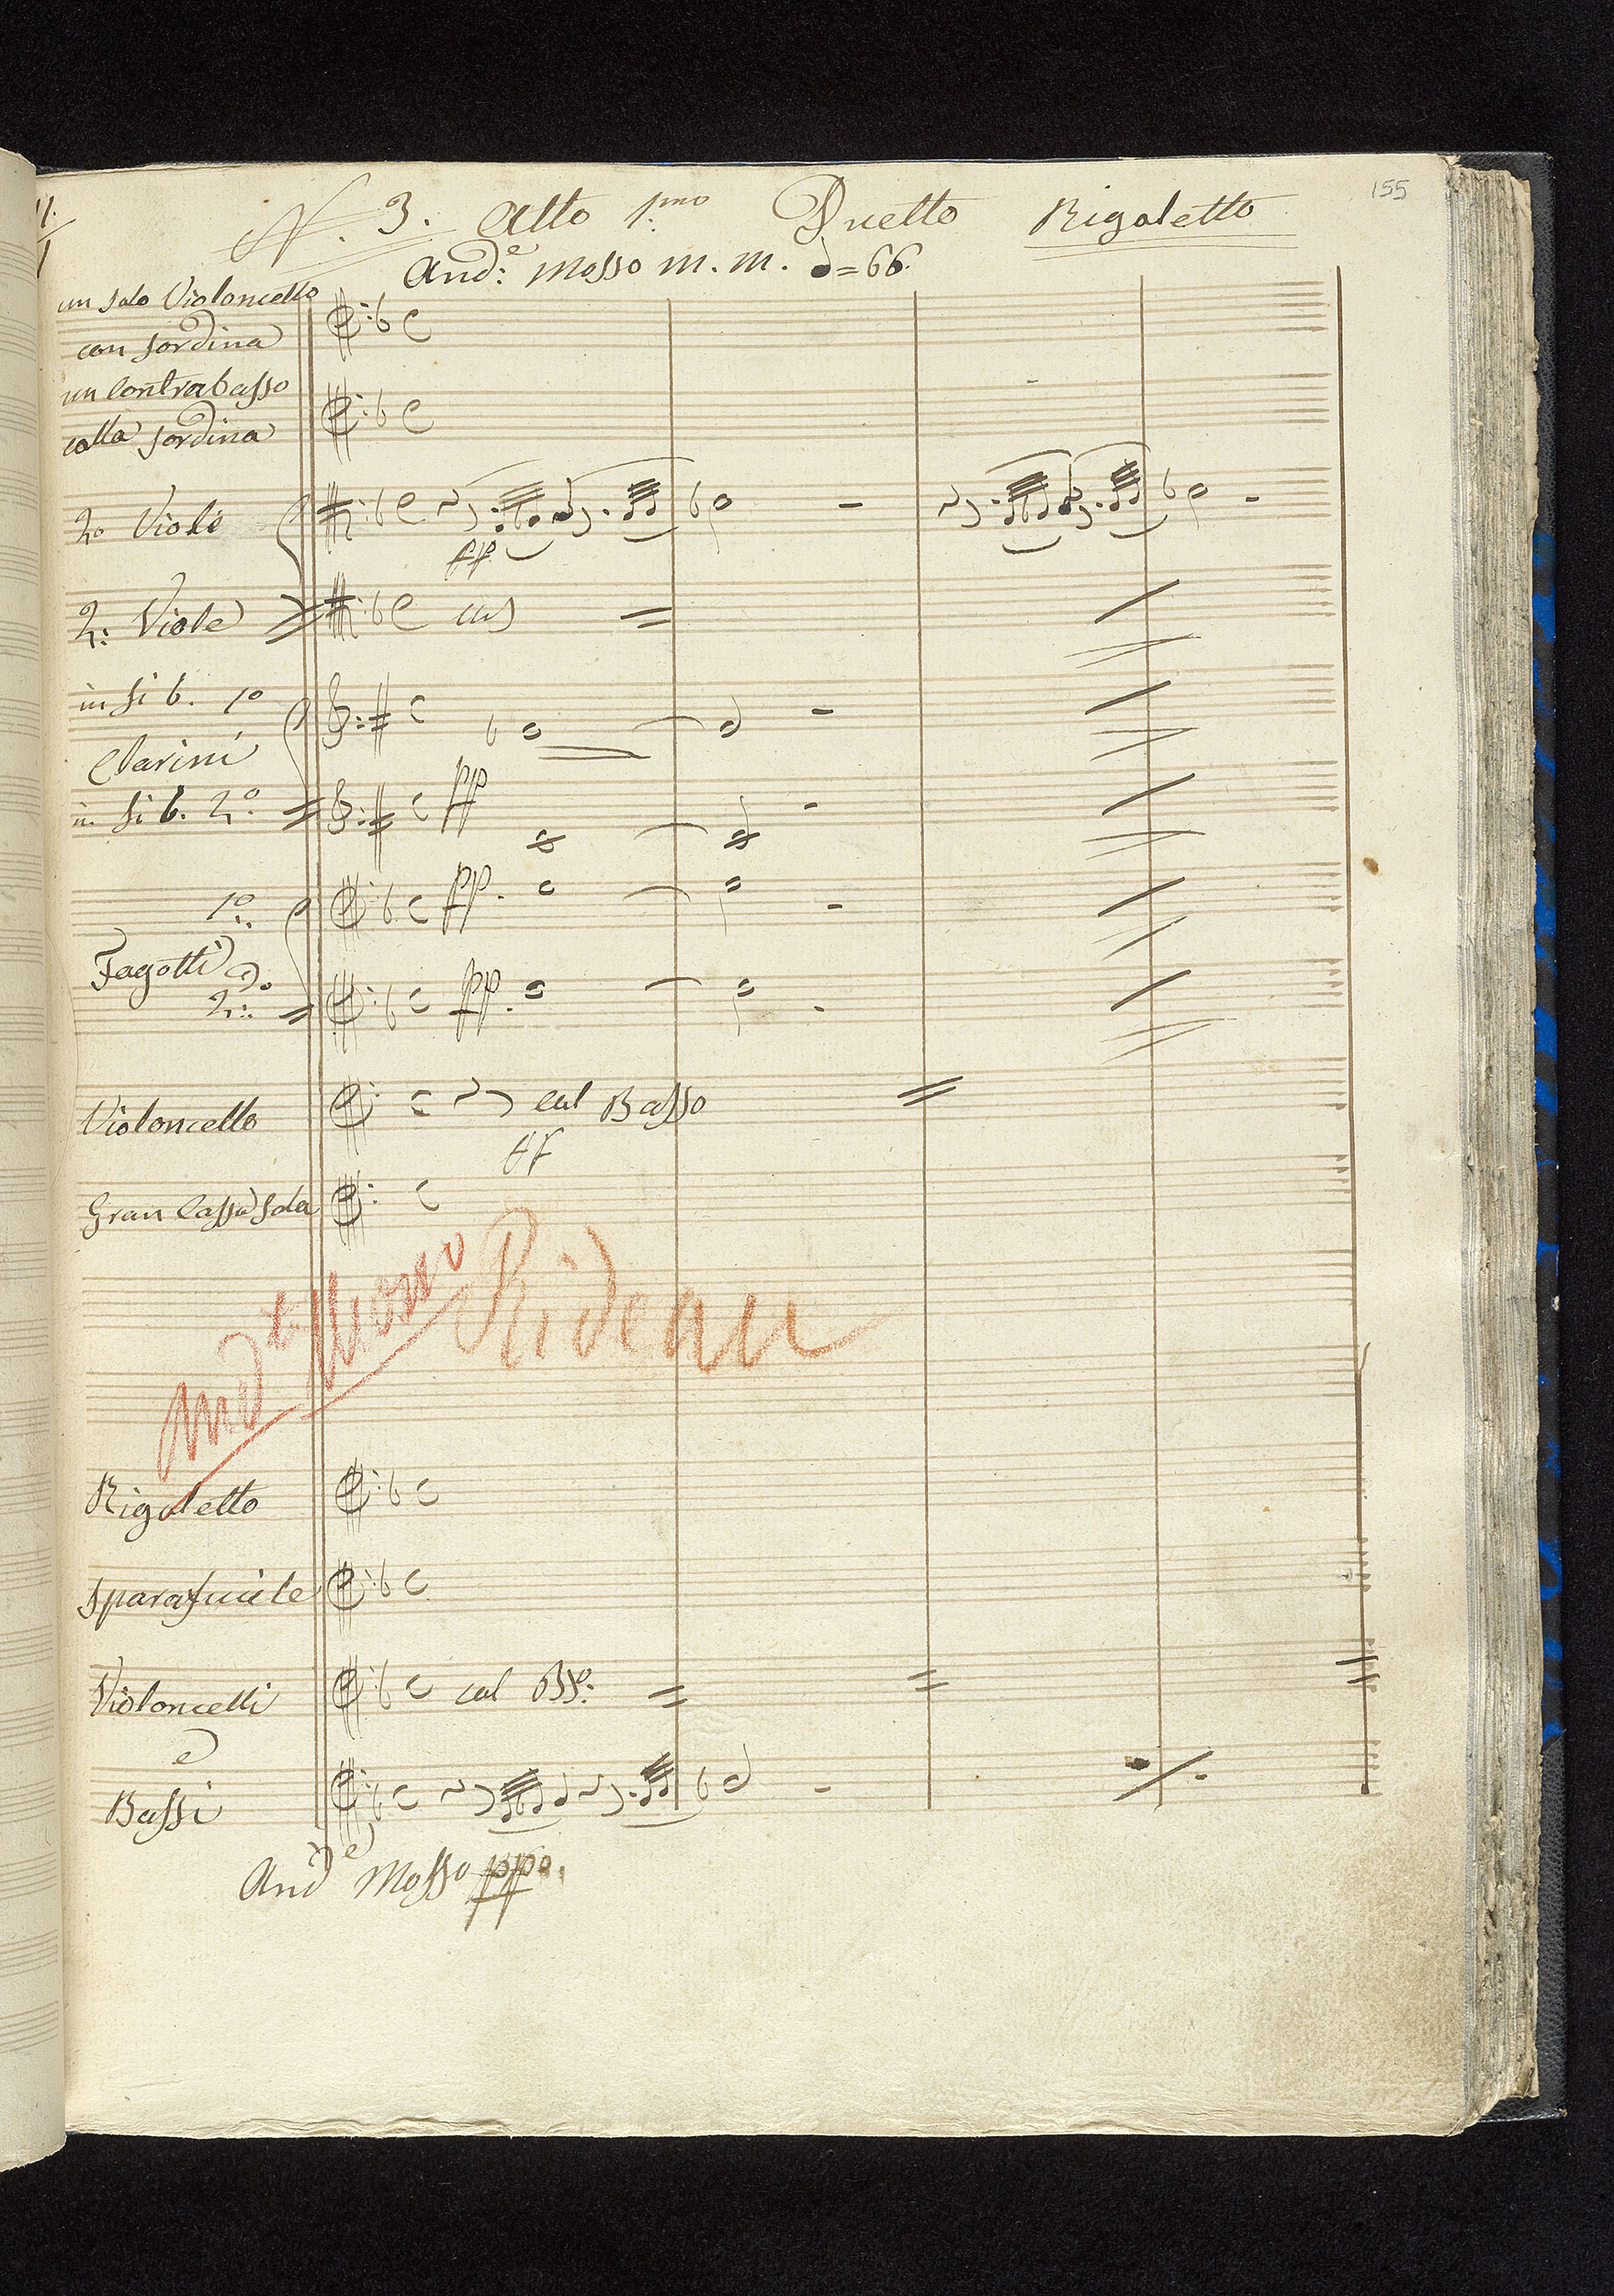 155
N. 3. Atto 1.mo Duetto Rigoletto
And.e Mosso M. M. = 66.
un solo Violoncello
con sordina
un Contrabasso
colla sordina
2e Viole
pp.
2e Viole
in Si b. 1o
Clarini
in Si b. 2o
pp
1o
pp.
Fagotti
2o
pp.
Violoncello
col Basso
Gran Cassa Sola
And.te Mosso
Rideau
Rigoletto
Sparafucile
Violoncelli
col Bso.
e
Bassi
And.e Mosso ppo.